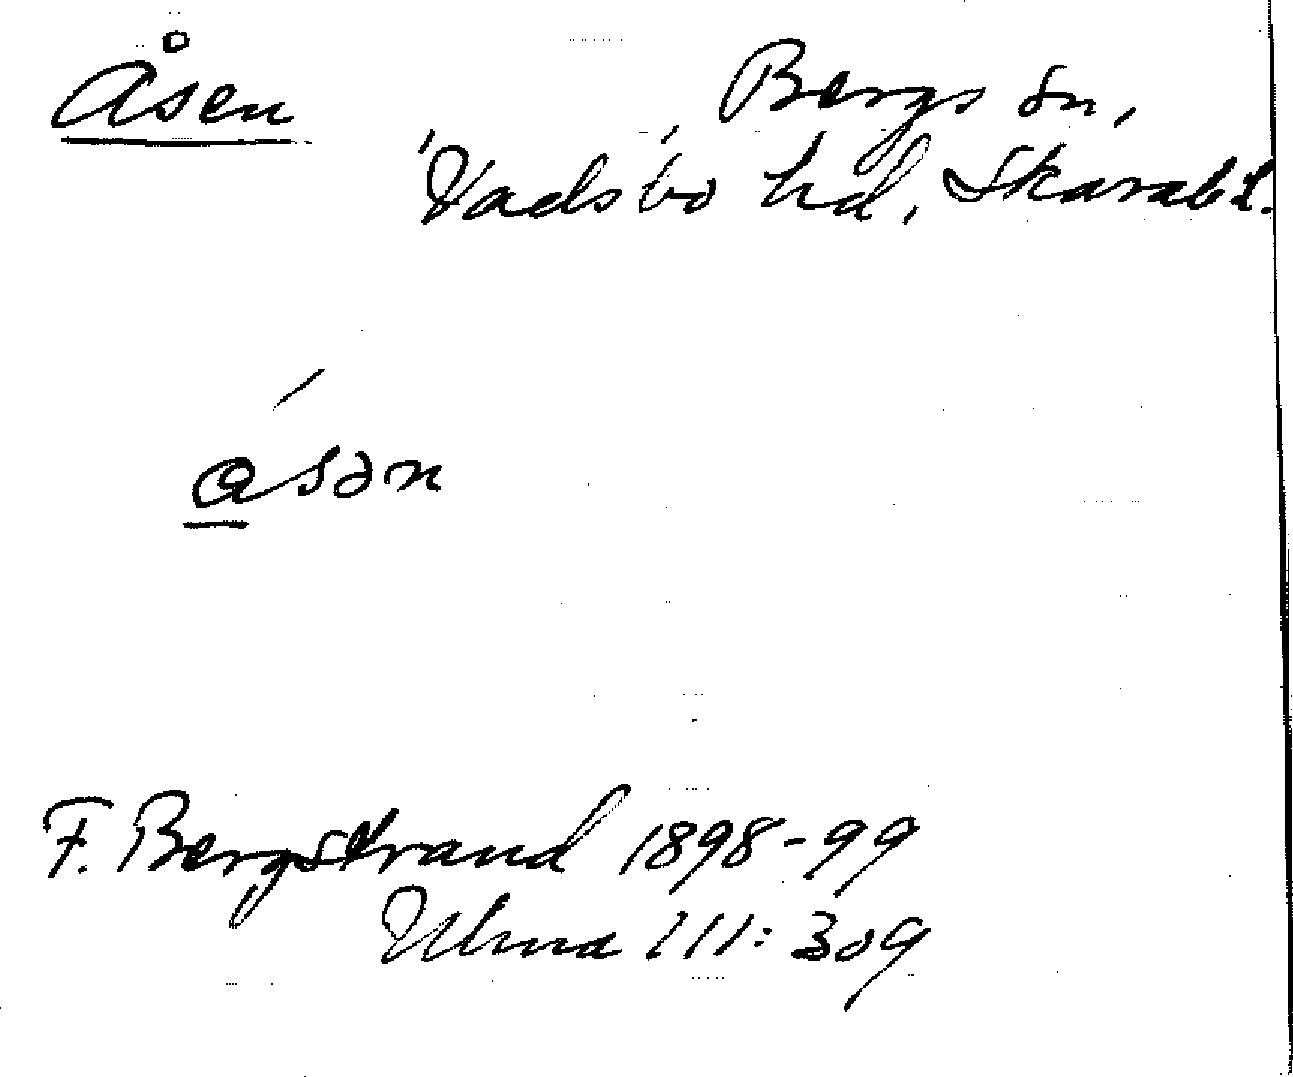 Åsen Bergs sn,
Vadsbo hd, Skarab.l.
åsən
F. Bergstrand 1898-99
Ulma 111:309